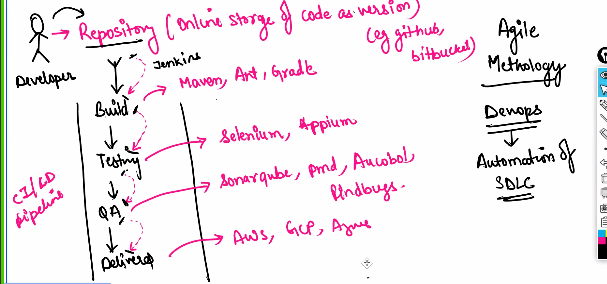 Repository (Online Storge of code as version)
(eg github,
bitbucket)
Developer
Jenkins
Build
Maven, Ant, Gradle
Testing
Selenium, Appium
QA
Sonarqube, pmd,
Findbugs.
Delivered
AWS, GCP, Azure
CI/CD
pipeline
Agile
Methology
Devops
Automation of
SDLC